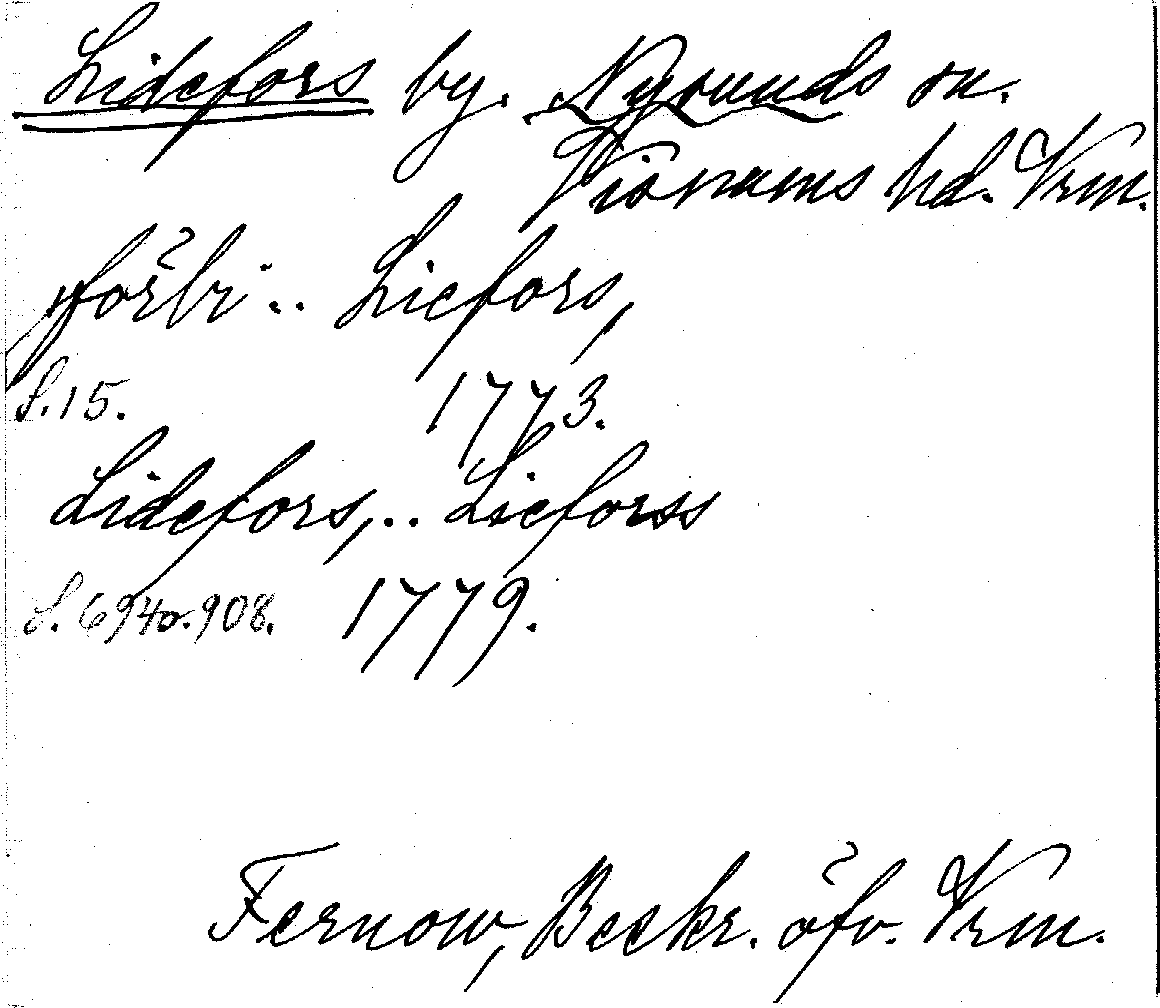 Lidefors by. Nysunds sn.
Visnums hd. Vrm.
förbi .. Liefors,
S. 15. 1773.
Lidefors, .. Lieforss
S. 694 o. 908. 1779.
Fernow, Beskr. öfv. Vrm.